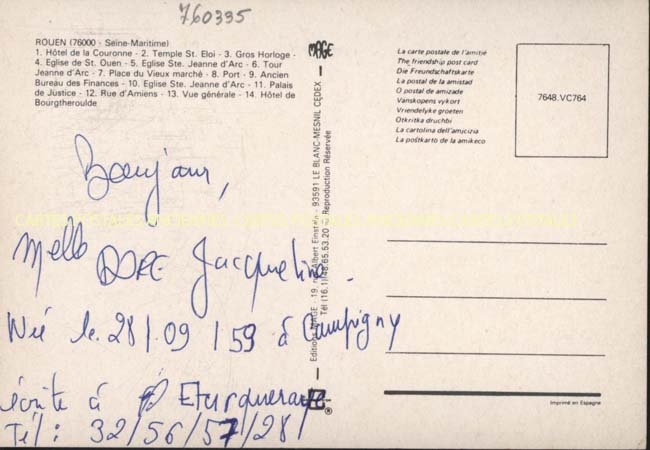 760335
ROUEN (76000 - Seine-Maritime)
1. Hôtel de la Couronne - 2. Temple St. Eloi - 3. Gros Horloge -
4. Eglise de St. Ouen - 5. Eglise Ste. Jeanne d'Arc - 6. Tour
Jeanne d'Arc - 7. Place du Vieux marché - 8. Port - 9. Ancien
Bureau des Finances - 10. Eglise Ste. Jeanne d'Arc - 11. Palais
de Justice - 12. Rue d'Amiens - 13. Vue générale - 14. Hôtel de
Bourgtheroulde
Bonjour,
Melle DORE Jacqueline
Née le 28/09/59 à Campigny
écrite à Eturqueraye
Tél: 32/56/57/28/
MAGE
Editions MAGE - 19, rue Albert Einstein - 93591 LE BLANC-MESNIL CEDEX
Tél (16.1) 48.65.53.20 Reproduction Réservée
®
La carte postale de l'amitié
The friendship post card
Die Freundschaftskarte
La postal de la amistad
O postal de amizade
Vänskopens vykort
Vriendelyke groeten
Otkritka druchbi
La cartolina dell'amicizia
La poŝtkarto de la amikeco
7648.VC764
Imprimé en Espagne